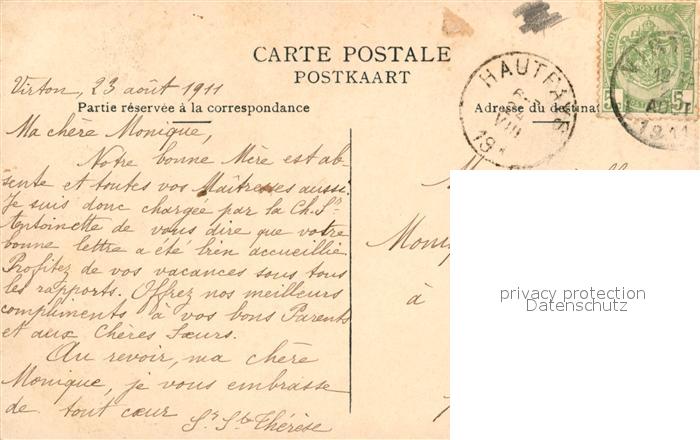 CARTE POSTALE
POSTKAART
Virton, 23 août 1911
Partie réservée à la correspondance
Adresse du destinat
Ma chère Monique,
Notre bonne Mère est ab-
sente et toutes vos Maîtresses aussi.
Je suis donc chargée par la Ch. Sr
Antoinette de vous dire que votre
bonne lettre a été bien accueillie
Profitez de vos vacances sous tous
les rapports. Offrez nos meilleurs
compliments à vos bons Parents
et aux Chères Sœurs.
Au revoir, ma chère
Monique, je vous embrasse
de tout cœur
Sr Ste Thérèse
HAUTFAYS
VIII
19
AOUT
1911
5 5
Moni
à
privacy protection
Datenschutz